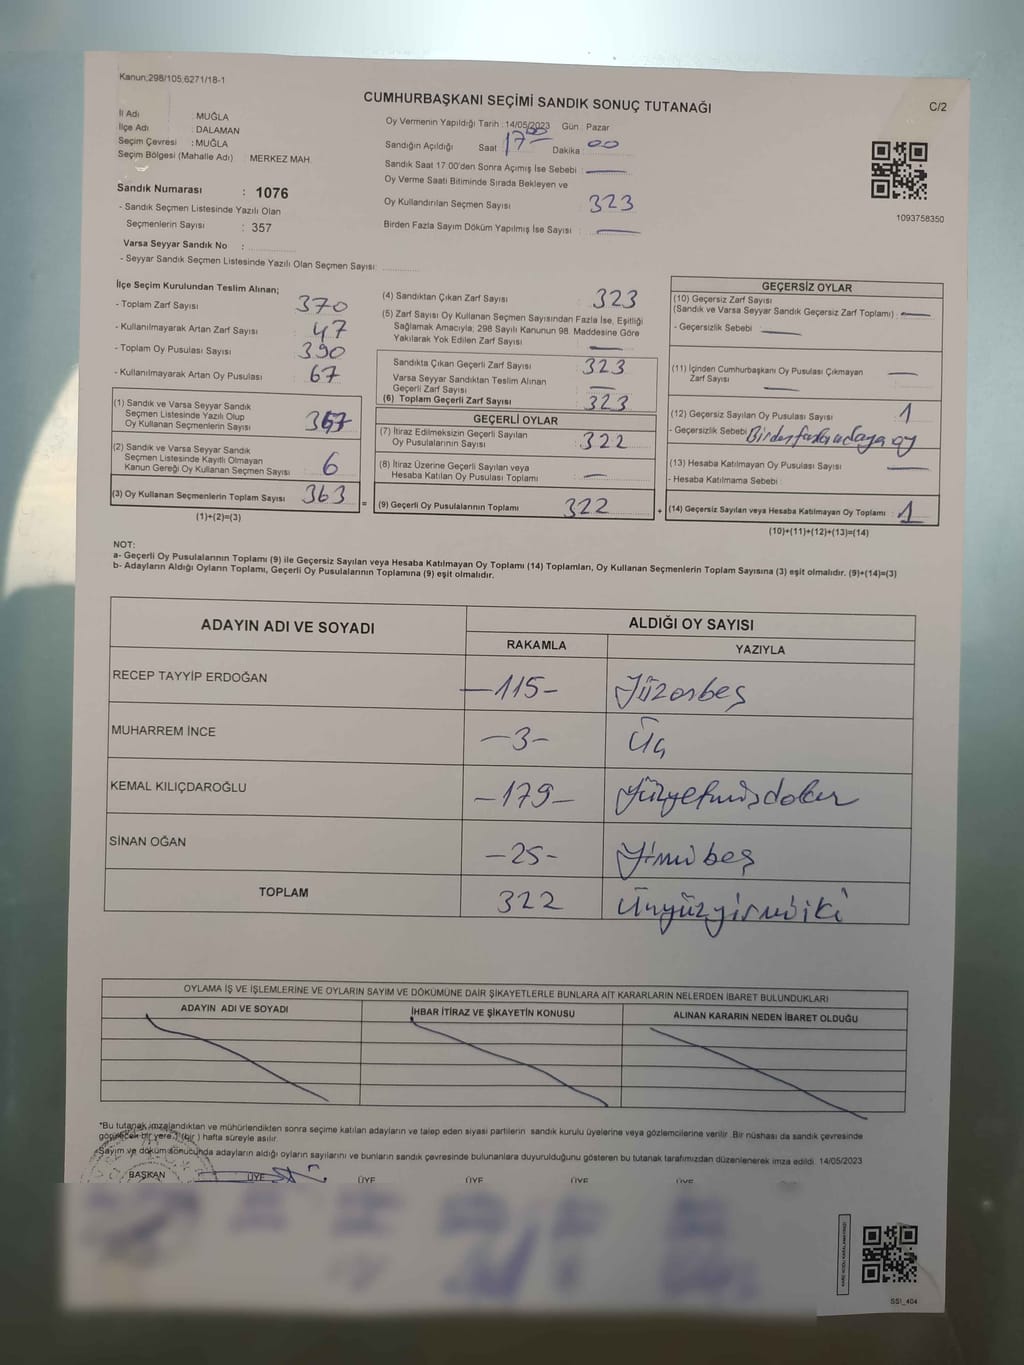 Kanun;298/105,6271/18-1
CUMHURBAŞKANI SEÇİMİ SANDIK SONUÇ TUTANAĞI
C/2
İl Adı : MUĞLA
İlçe Adı : DALAMAN
Seçim Çevresi : MUĞLA
Seçim Bölgesi (Mahalle Adı) : MERKEZ MAH.
Sandık Numarası : 1076
- Sandık Seçmen Listesinde Yazılı Olan
Seçmenlerin Sayısı : 357
Varsa Seyyar Sandık No :
- Seyyar Sandık Seçmen Listesinde Yazılı Olan Seçmen Sayısı:
Oy Vermenin Yapıldığı Tarih : 14/05/2023 Gün : Pazar
Sandığın Açıldığı Saat 17 00 Dakika 00
Sandık Saat 17:00'den Sonra Açımış İse Sebebi :
Oy Verme Saati Bitiminde Sırada Bekleyen ve
Oy Kullandırılan Seçmen Sayısı 323
Birden Fazla Sayım Döküm Yapılmış İse Sayısı :
1093758350
İlçe Seçim Kurulundan Teslim Alınan;
- Toplam Zarf Sayısı 370
- Kullanılmayarak Artan Zarf Sayısı : 47
- Toplam Oy Pusulası Sayısı : 390
- Kullanılmayarak Artan Oy Pusulası : 67
(1) Sandık ve Varsa Seyyar Sandık
Seçmen Listesinde Yazılı Olup
Oy Kullanan Seçmenlerin Sayısı :
(2) Sandık ve Varsa Seyyar Sandık
Seçmen Listesinde Kayıtlı Olmayan
Kanun Gereği Oy Kullanan Seçmen Sayısı : 6
(3) Oy Kullanan Seçmenlerin Toplam Sayısı : 363 =
(1)+(2)=(3)
(4) Sandıktan Çıkan Zarf Sayısı : 323
(5) Zarf Sayısı Oy Kullanan Seçmen Sayısından Fazla İse, Eşitliği
Sağlamak Amacıyla; 298 Sayılı Kanunun 98. Maddesine Göre
Yakılarak Yok Edilen Zarf Sayısı :
Sandıkta Çıkan Geçerli Zarf Sayısı : 323
Varsa Seyyar Sandıktan Teslim Alınan
Geçerli Zarf Sayısı :
(6) Toplam Geçerli Zarf Sayısı : 323
GEÇERLİ OYLAR
(7) İtiraz Edilmeksizin Geçerli Sayılan
Oy Pusulalarının Sayısı : 322
(8) İtiraz Üzerine Geçerli Sayılan veya
Hesaba Katılan Oy Pusulası Toplamı :
(9) Geçerli Oy Pusulalarının Toplamı : 322 +
GEÇERSİZ OYLAR
(10) Geçersiz Zarf Sayısı
(Sandık ve Varsa Seyyar Sandık Geçersiz Zarf Toplamı) :
- Geçersizlik Sebebi :
(11) İçinden Cumhurbaşkanı Oy Pusulası Çıkmayan
Zarf Sayısı :
(12) Geçersiz Sayılan Oy Pusulası Sayısı : 1
- Geçersizlik Sebebi : Birden fazla adaya oy
(13) Hesaba Katılmayan Oy Pusulası Sayısı :
- Hesaba Katılmama Sebebi :
(14) Geçersiz Sayılan veya Hesaba Katılmayan Oy Toplamı : 1
(10)+(11)+(12)+(13)=(14)
NOT:
a- Geçerli Oy Pusulalarının Toplamı (9) ile Geçersiz Sayılan veya Hesaba Katılmayan Oy Toplamı (14) Toplamları, Oy Kullanan Seçmenlerin Toplam Sayısına (3) eşit olmalıdır. (9)+(14)=(3)
b- Adayların Aldığı Oyların Toplamı, Geçerli Oy Pusulalarının Toplamına (9) eşit olmalıdır.
ADAYIN ADI VE SOYADI
ALDIĞI OY SAYISI
RAKAMLA YAZIYLA
RECEP TAYYİP ERDOĞAN -115- Yüzonbeş
MUHARREM İNCE -3- Üç
KEMAL KILIÇDAROĞLU -179- Yüzyetmişdokuz
SİNAN OĞAN -25- Yirmibeş
TOPLAM 322 Üçyüzyirmiiki
OYLAMA İŞ VE İŞLEMLERİNE VE OYLARIN SAYIM VE DÖKÜMÜNE DAİR ŞİKAYETLERLE BUNLARA AİT KARARLARIN NELERDEN İBARET BULUNDUKLARI
ADAYIN ADI VE SOYADI İHBAR İTİRAZ VE ŞİKAYETİN KONUSU ALINAN KARARIN NEDEN İBARET OLDUĞU
*Bu tutanak imzalandıktan ve mühürlendikten sonra seçime katılan adayların ve talep eden siyasi partilerin sandık kurulu üyelerine veya gözlemcilerine verilir .Bir nüshası da sandık çevresinde
görülecek bir yere 1 (bir ) hafta süreyle asılır.
*Sayım ve döküm sonucunda adayların aldığı oyların sayılarını ve bunların sandık çevresinde bulunanlara duyurulduğunu gösteren bu tutanak tarafımızdan düzenlenerek imza edildi. 14/05/2023
BAŞKAN ÜYE ÜYE ÜYE ÜYE ÜYE
SSI_404